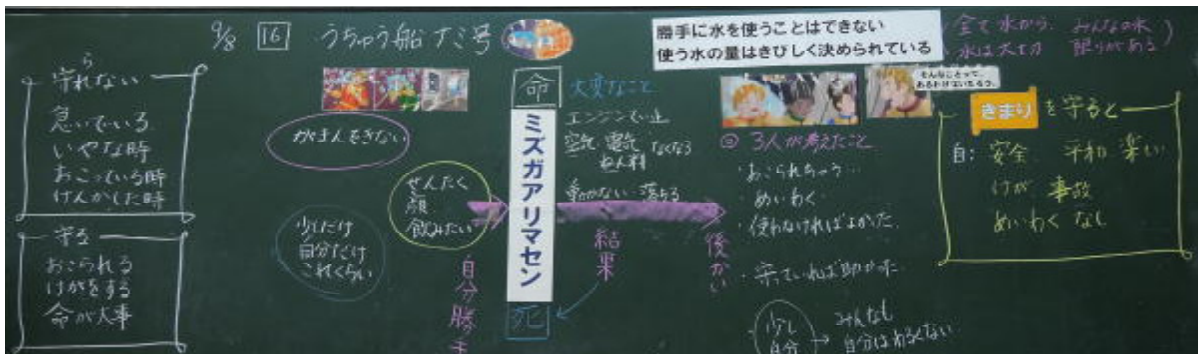 9/8 16 うちゅう船ナミ号
勝手に水を使うことはできない
使う水の量はきびしく決められている
全て水から みんなの水
水は大切 限りがある
ら
守れない
急いでいる
いやな時
おこっている時
けんかした時
守る
おこられる
けがをする
命が大事
がまんできない
少しだけ
自分だけ
これくらい
せんたく
顔
飲みたい
自分勝手
命
ミズガアリマセン
死
大変なこと
エンジンてい止
空気 電気 なくなる
ねん料
動かない 落ちる
結果
後かい
そんなことって、
あるわけないだろう。
3人が考えたこと
・おこられちゃう…
・めいわく
・使わなければよかった
・守っていれば助かった
少し
自分
→ みんなも
自分はわるくない
きまりを守ると
自: 安全 平和 楽しい
けが 事故
めいわく なし